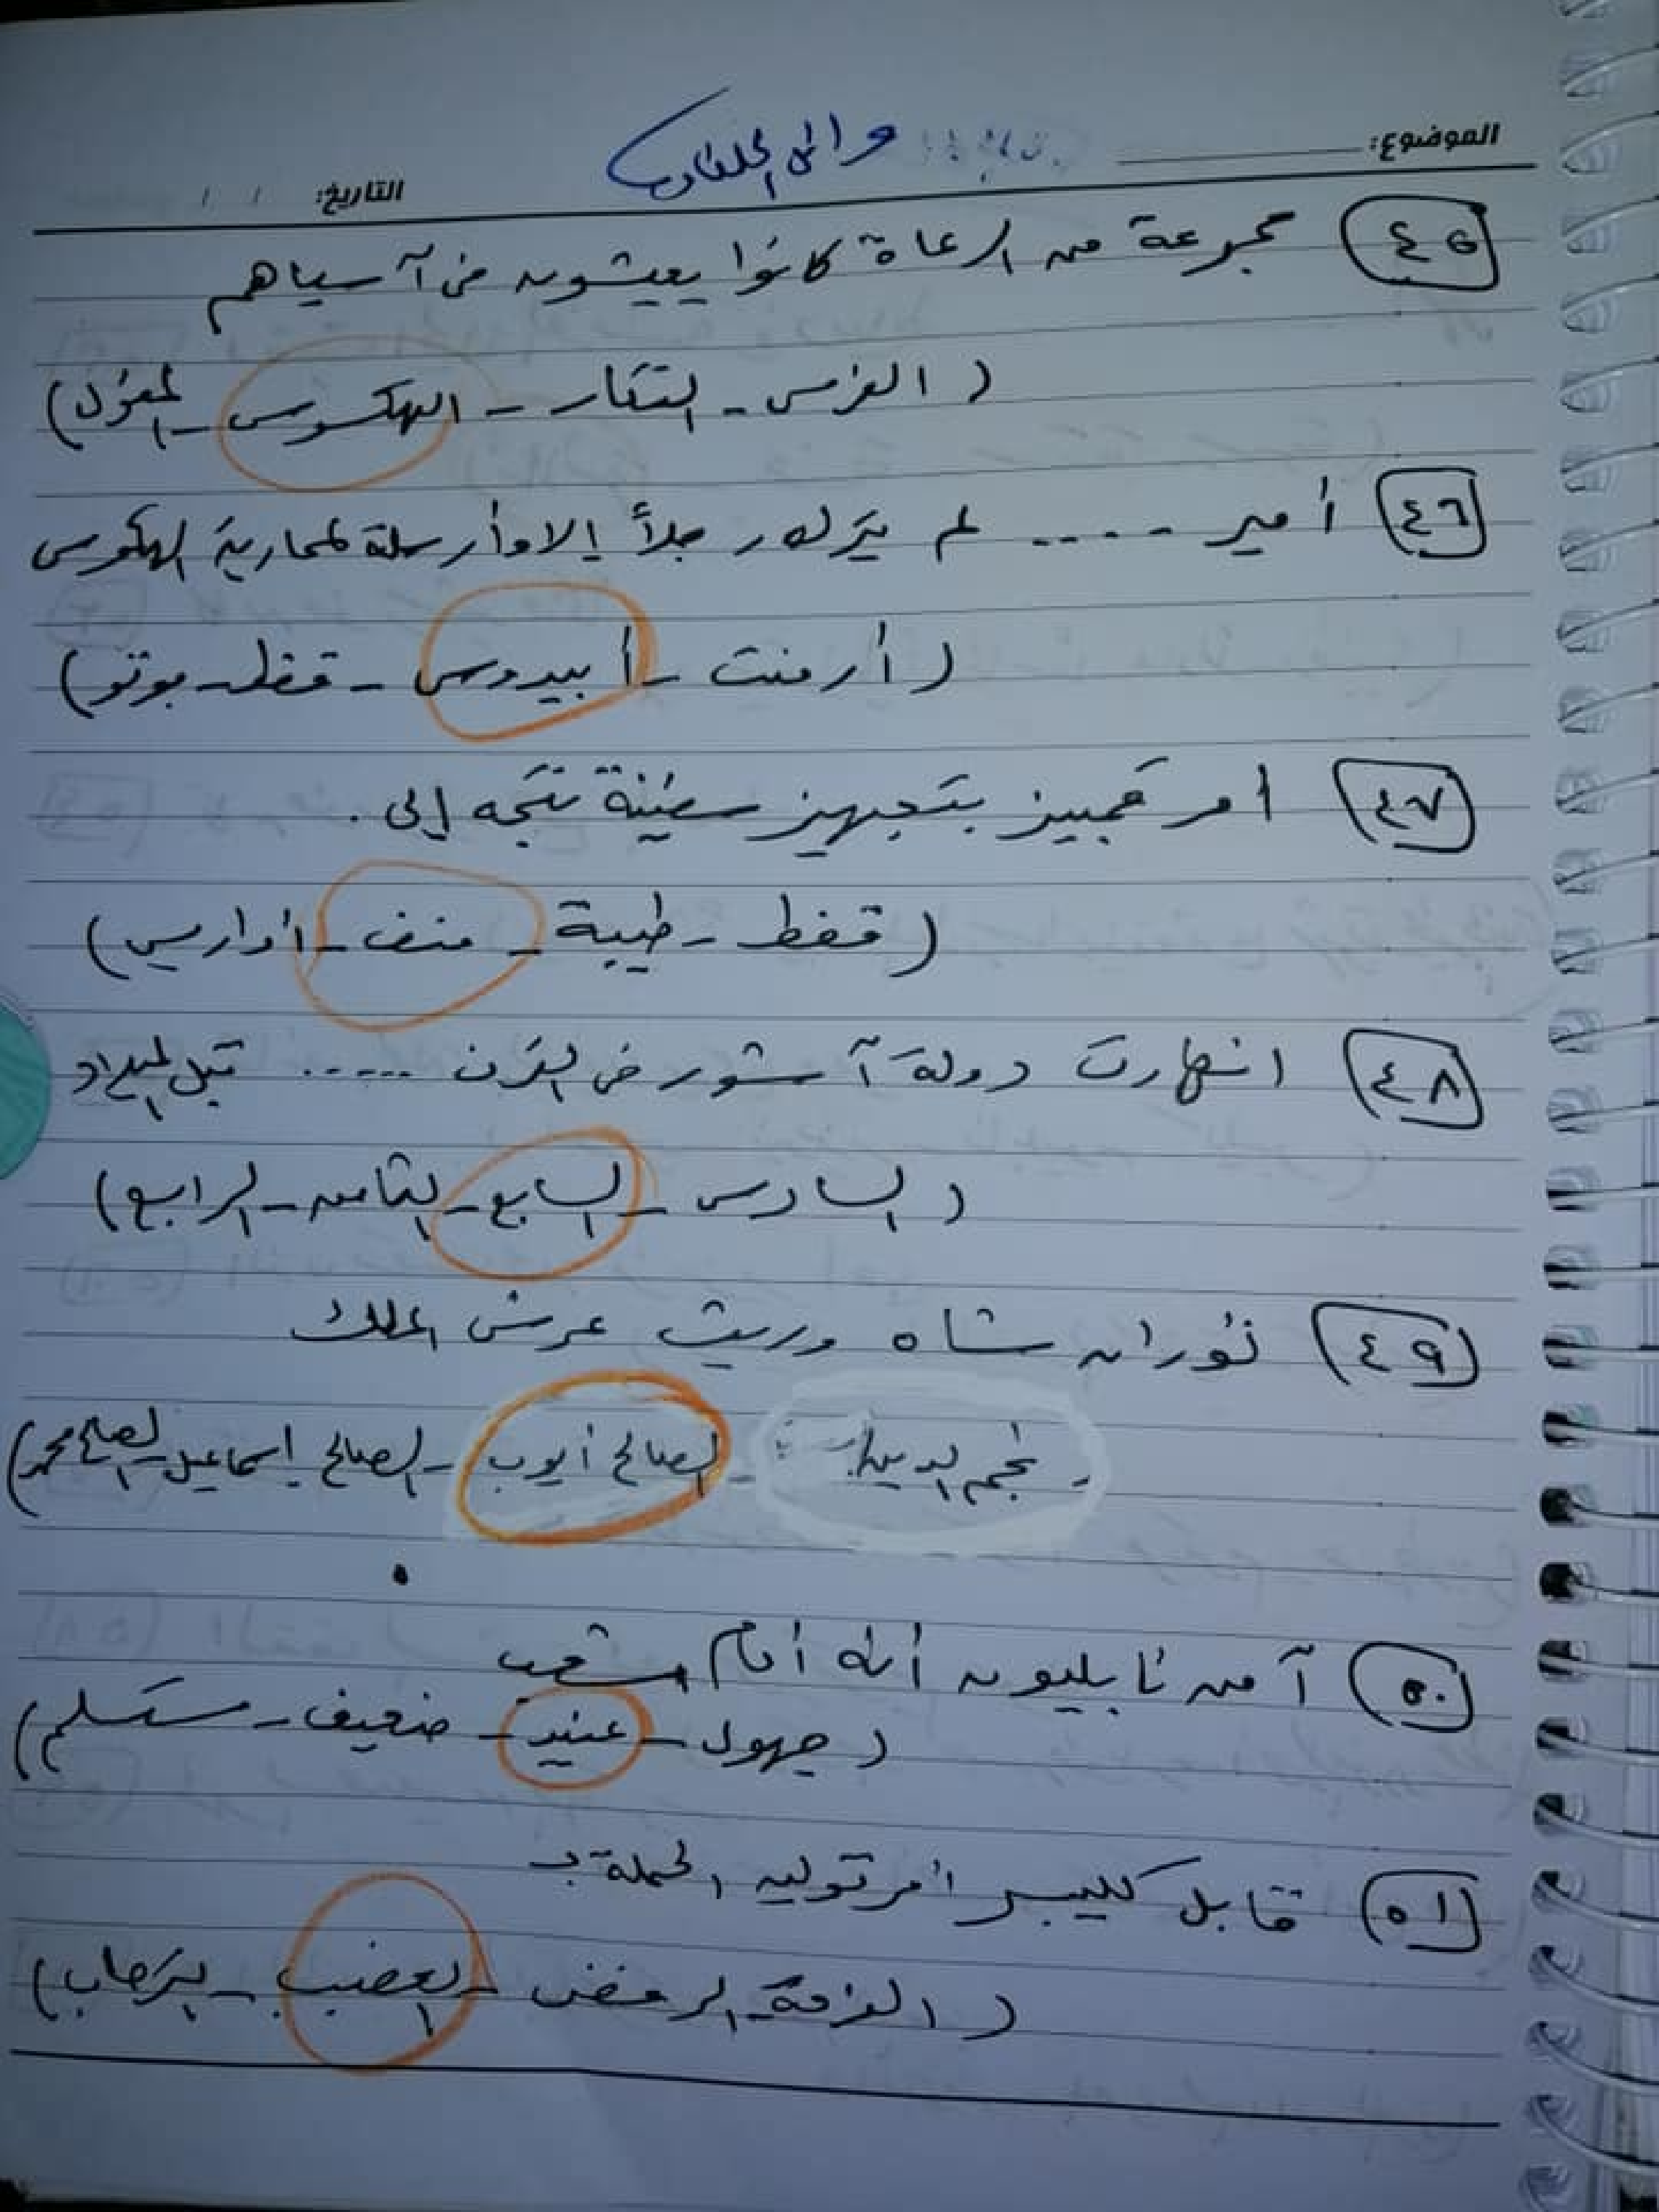 الموضوع:
التاريخ: / /
٤٥ مجموعة من الرعاة كانوا يعيشون في آسيا هم
( الفرس - التتار - الهكسوس - المغول )
٤٦ أمير ..... لم يترك رجلاً إلا وأرسله لمحاربة الهكسوس
( أرمنت - أبيدوس - قفط - بوتو )
٤٧ امر قمبيز بتجهيز سفينة تتجه إلى .
( قفط - طيبة - منف - أواريس )
٤٨ انهارت دولة آشور في القرن ..... قبل الميلاد
( السادس - السابع - الثامن - الرابع )
٤٩ توران شاه وريث عرش الملك
نجم الدين - الصالح أيوب - الصالح إسماعيل - الصالح محمد )
٥٠ آمن نابليون أنه أمام شعب
( جهول - عنيد - ضعيف - مستسلم )
٥١ قابل كليبر أمر توليه الحملة بـ
( الفرحة - الرفض - الغضب - الترحاب )